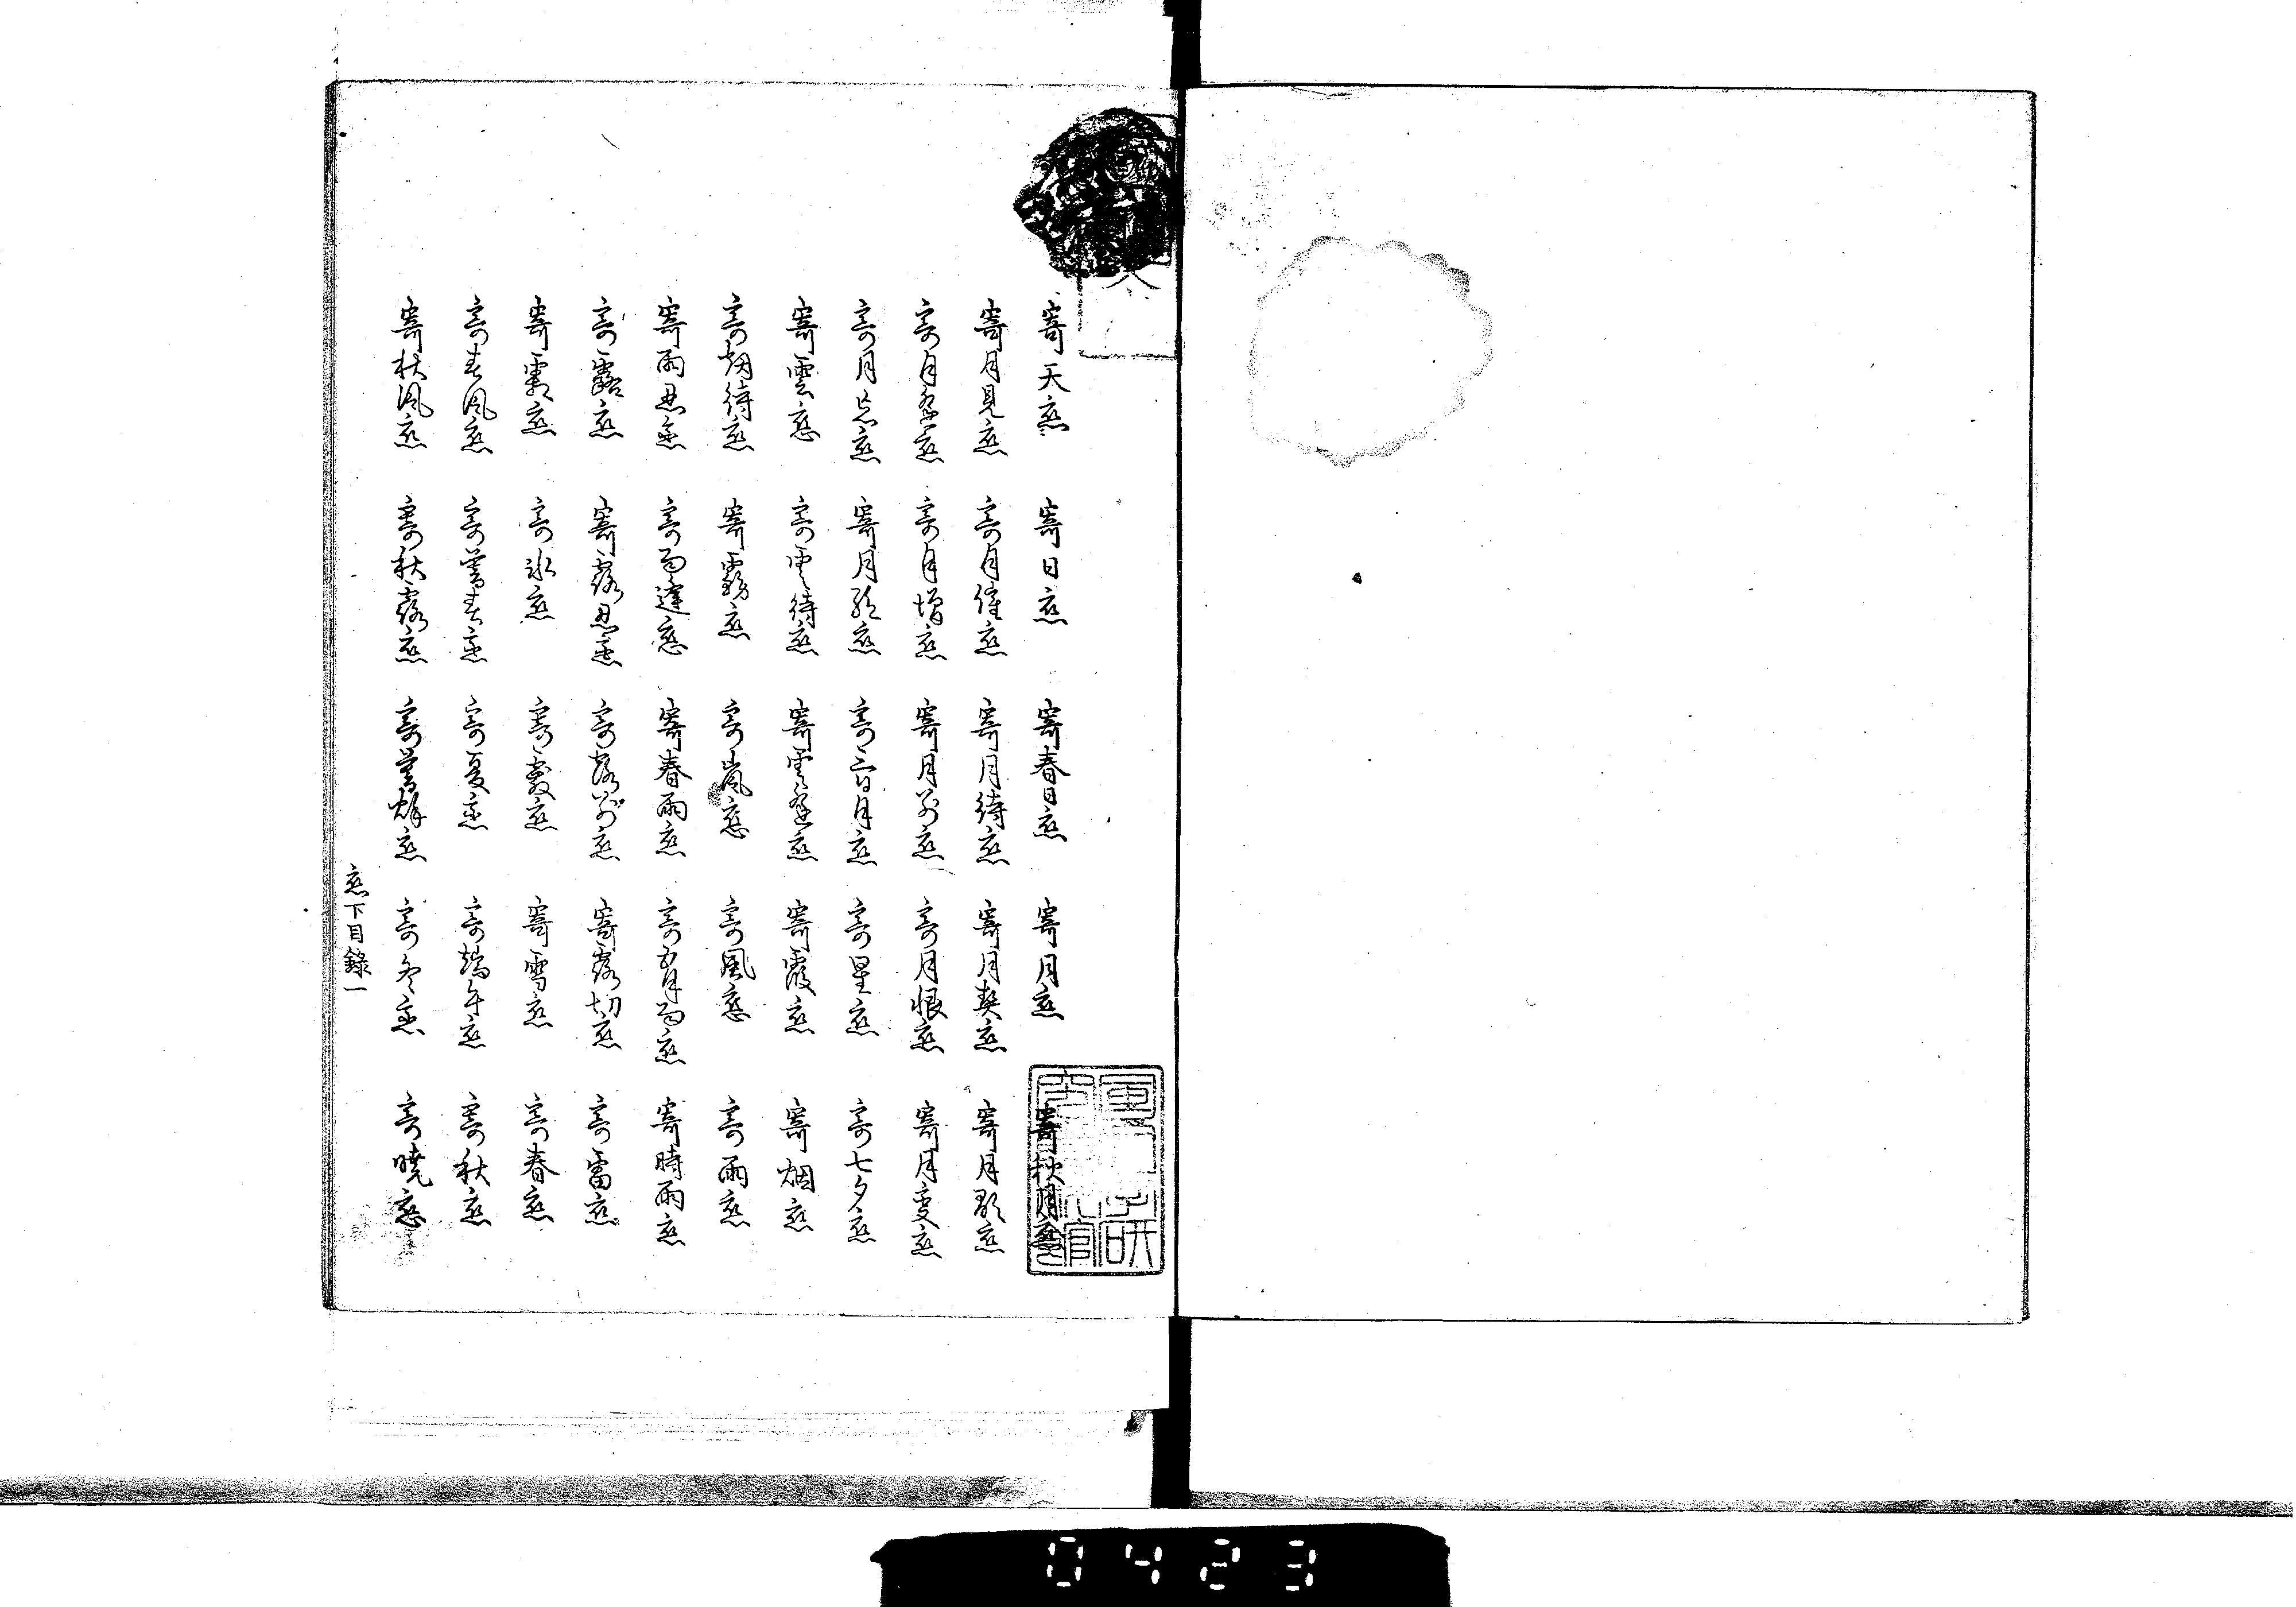 寄天恋 寄日恋 寄春日恋 寄月恋 寄秋月恋
寄月見恋 寄月催恋 寄月待恋 寄月契恋 寄月顕恋
寄月逢恋 寄月増恋 寄月別恋 寄月恨恋 寄月変恋
寄月忘恋 寄月絶恋 寄三日月恋 寄星恋 寄七夕恋
寄雲恋 寄雲待恋 寄雲逢恋 寄霞恋 寄烟恋
寄烟待恋 寄霧恋 寄嵐恋 寄風恋 寄雨恋
寄雨忍恋 寄雨逢恋 寄春雨恋 寄五月雨恋 寄時雨恋
寄露恋 寄露忍恋 寄露別恋 寄露切恋 寄雷恋
寄霜恋 寄氷恋 寄霰恋 寄雪恋 寄春恋
寄春風恋 寄暮春恋 寄夏恋 寄端午恋 寄秋恋
寄秋風恋 寄秋露恋 寄暮秋恋 寄冬恋 寄暁恋
恋下目録一
0423